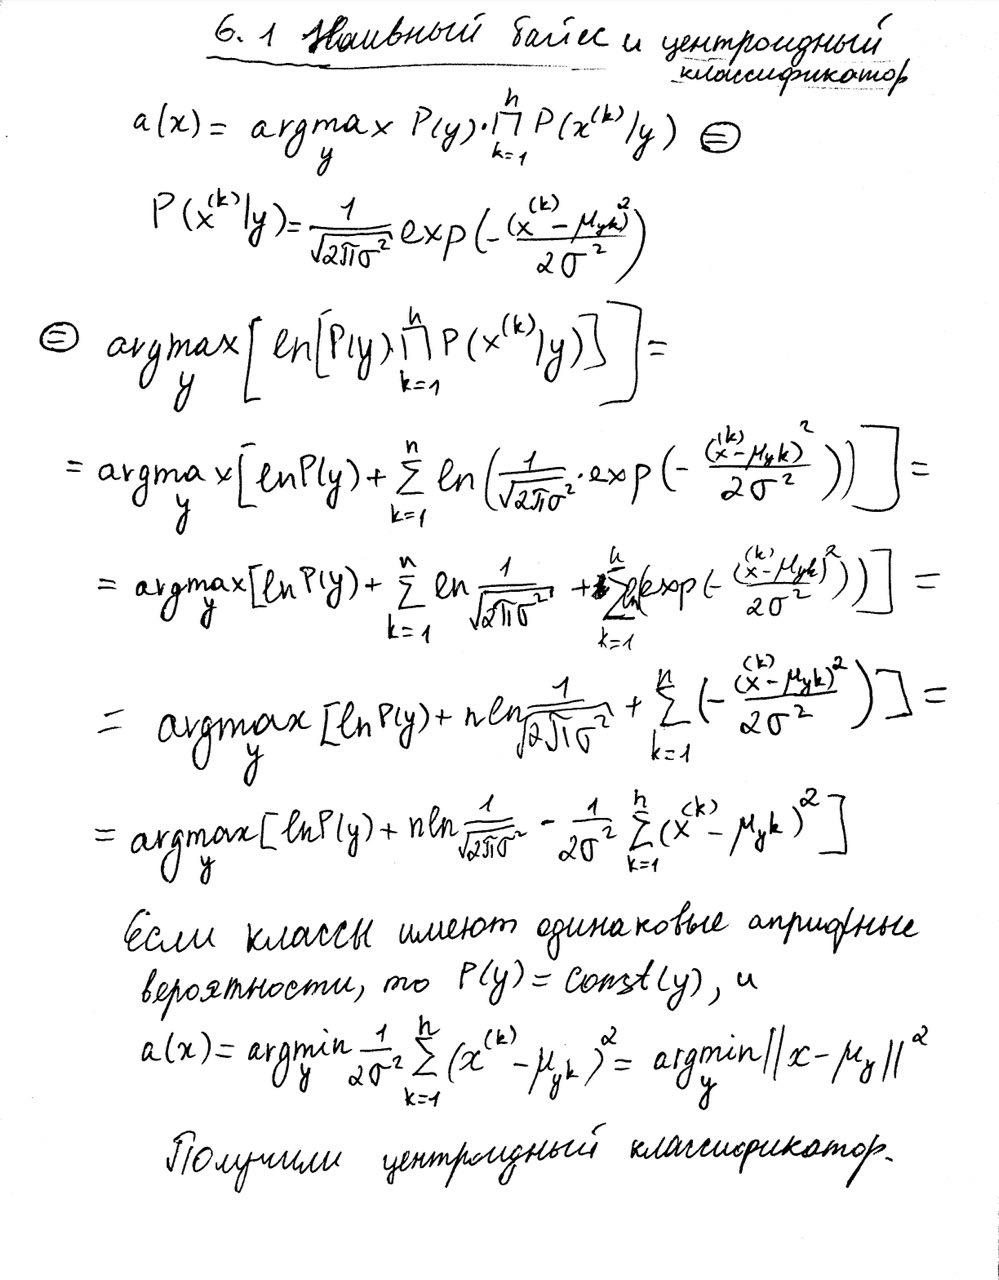 6.1 Наивный байес и центроидный
классификатор
a(x) = argmax_y P(y)·∏_{k=1}^{n} P(x^{(k)}|y) ⊜
P(x^{(k)}|y) = \frac{1}{\sqrt{2πσ^2}} exp(-\frac{(x^{(k)} - μ_{yk})^2}{2σ^2})
⊜ argmax_y [ln[P(y)·∏_{k=1}^{n} P(x^{(k)}|y)]] =
= argmax_y [lnP(y) + ∑_{k=1}^{n} ln(\frac{1}{\sqrt{2πσ^2}}·exp(-\frac{(x^{(k)} - μ_{yk})^2}{2σ^2}))] =
= argmax_y [lnP(y) + ∑_{k=1}^{n} ln \frac{1}{\sqrt{2πσ^2}} + ∑_{k=1}^{n} ln(exp(-\frac{(x^{(k)} - μ_{yk})^2}{2σ^2}))] =
= argmax_y [lnP(y) + n ln \frac{1}{\sqrt{2πσ^2}} + ∑_{k=1}^{n} (-\frac{(x^{(k)} - μ_{yk})^2}{2σ^2})] =
= argmax_y [lnP(y) + n ln \frac{1}{\sqrt{2πσ^2}} - \frac{1}{2σ^2} ∑_{k=1}^{n} (x^{(k)} - μ_{yk})^2]
Если классы имеют одинаковые априорные
вероятности, то P(y) = const(y), и
a(x) = argmin_y \frac{1}{2σ^2} ∑_{k=1}^{n} (x^{(k)} - μ_{yk})^2 = argmin_y ||x - μ_y||^2
Получили центроидный классификатор.